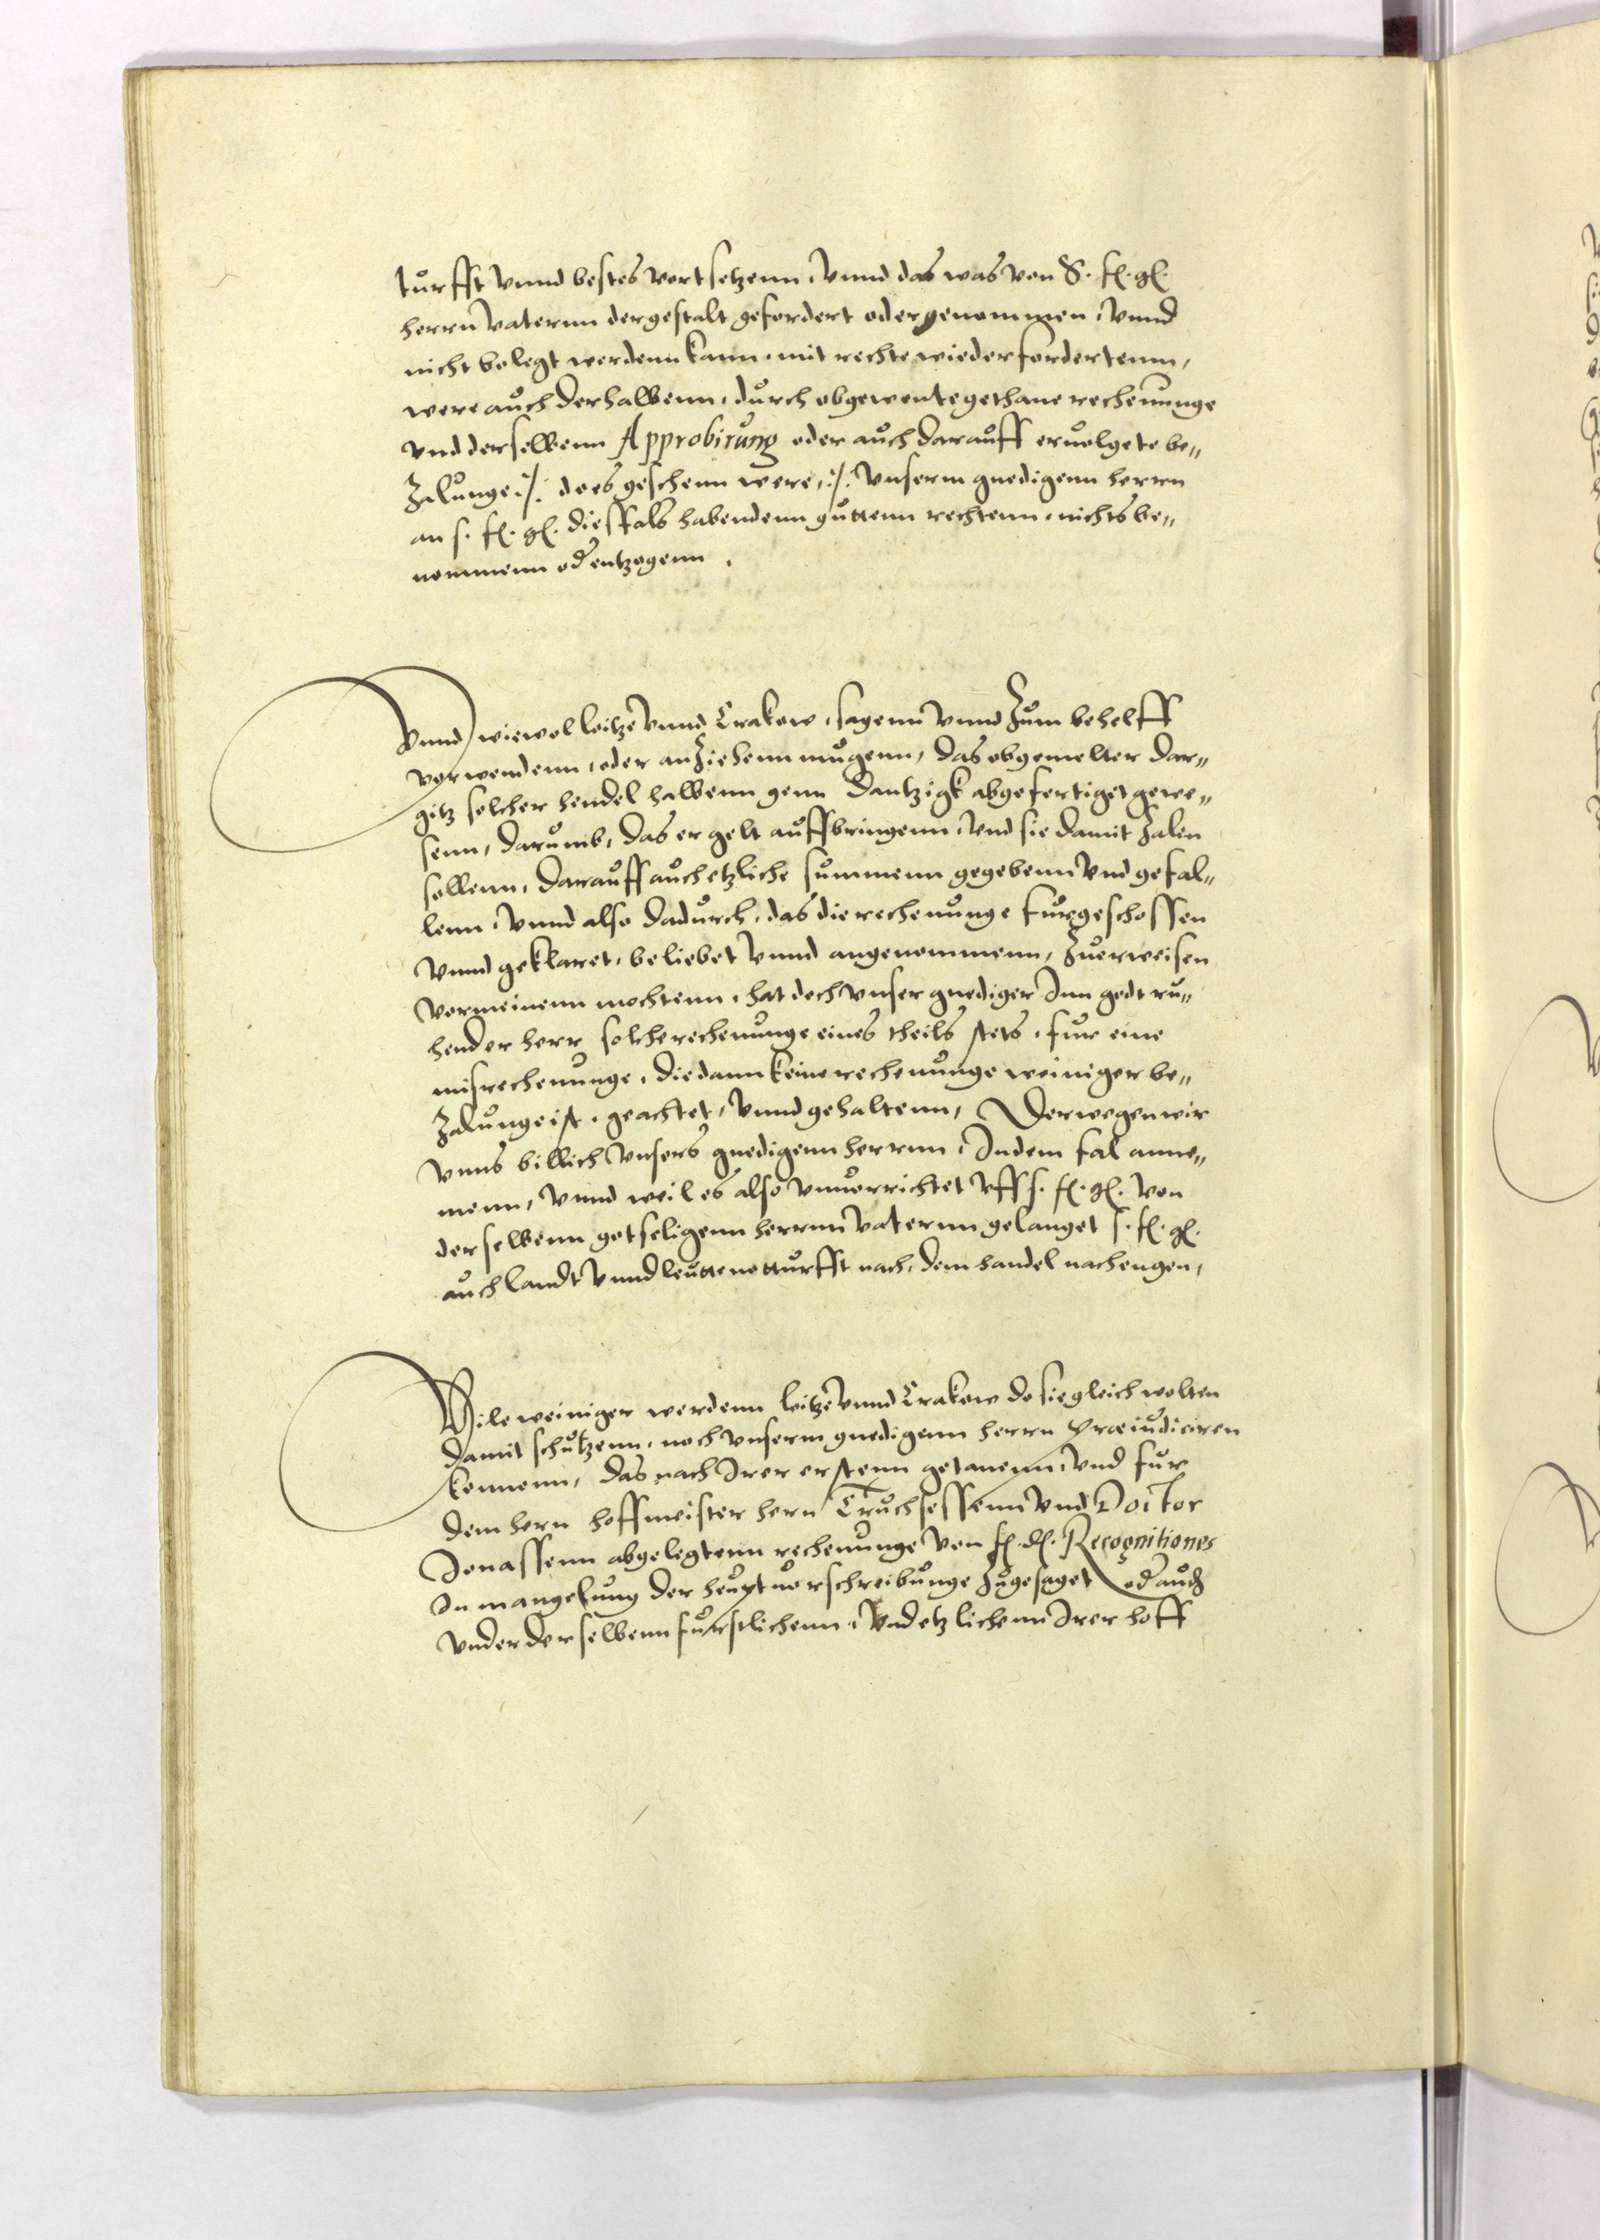 turfft vnnd bestes vortsetzenn, vnnd das was von S. fl. gl.
herrn vaternn dergestalt gefordert oder genommen, vnnd
nicht belegt werdenn kann, mit rechte wiederfordertenn,
were auch derhalbenn, durch obgewente gethane rechenunge
vnd derselbenn Approbirung oder auch darauff eruolgete be„
zalunge ./. do es geschenn were, ./. vnserm gnedigenn herrn
an s. fl. gl. diesfals habendenn guttenn rechtenn, nichts be„
nommenn od entzogenn.
Vnnd wiewol loitze vnnd Crakow, sagenn vnnd zum behelff
vorwendenn, oder anziehenn mugenn, das obgemelter dar„
gitz solcher hendel halbenn genn Dantzigk abgefertiget gewe„
senn, darumb, das er gelt auffbringenn, vnd sie damit zalen
sollenn, darauff auch etzliche summenn gegebenn vnd gefal„
lenn, vnnd also dadurch, das die rechenunge furgeschossen
vnnd geklaret, beliebet vnnd angenommenn, zuerweisen
vermeinenn mochtenn, hat doch vnser gnediger Inn gedt ru„
hender herr solche rechenunge eines theils stets, fur eine
misrechenunge, die dann keine rechenunge weiniger be„
zalunge ist, geachtet, vnnd gehaltenn, Derwegen wir
vnns billich vnsers gnedigenn herrnn, Indem fal anne„
menn, vnnd weil es also vnuorrichtet vff s. fl. gl. von
derselbenn gotseligenn herrnn vaternn gelanget s. fl. gl.
auch landt vnnd leutte notturfft nach, dem handel nachengen,
Vile weiniger werdenn loitze vnnd Crakow do sie gleich wolten
damit schutzenn, noch vnserm gnedigenn herrn præiudiciren
konnenn, das nach Irer erstenn getanenn, vnd fur
dem hern hoffmeister hern Truchsessenn vnd Doctor
Jonassenn abgelegtenn rechenunge von fl. dl. Recognitiones
In mangelung der heuptuorschreibunge zugesaget od auch
vnder derselbenn furstlichenn, vnd etzlichenn Irer hoff